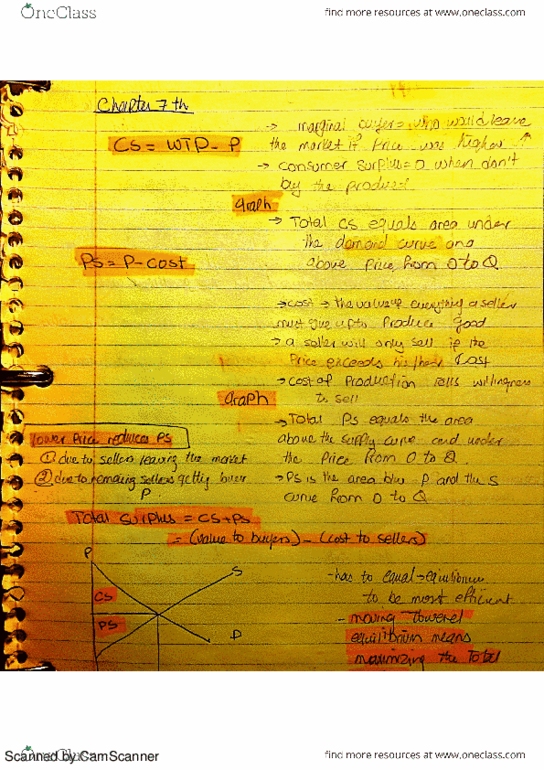 OneClass
find more resources at www.oneclass.com
Chapter 7th
→ marginal buyer = who would leave
CS = WTP - P
the market if Price was higher ↑
→ consumer surplus = 0 when don't
buy the product
Graph
→ Total CS equals area under
the demand curve and
above Price from 0 to Q
PS = P - cost
→ cost → the value of everything a seller
must give up to Produce good
→ a seller will only sell if the
Price exceeds his/her cost
→ cost of Production tells willingness
to sell
Graph
→ Total PS equals the area
above the supply curve and under
the Price from 0 to Q.
→ PS is the area b/w P and the S
curve from 0 to Q
lower Price reduces PS
① due to sellers leaving the market
② due to remaing sellers getting lower
P
Total Surplus = CS + PS
= (value to buyers) - (cost to sellers)
P
S
CS
PS
D
- has to equal → equilibrium
to be most efficient
- moving toward
equilibrium means
maximizing the Total
OneClass
Scanned by CamScanner
find more resources at www.oneclass.com